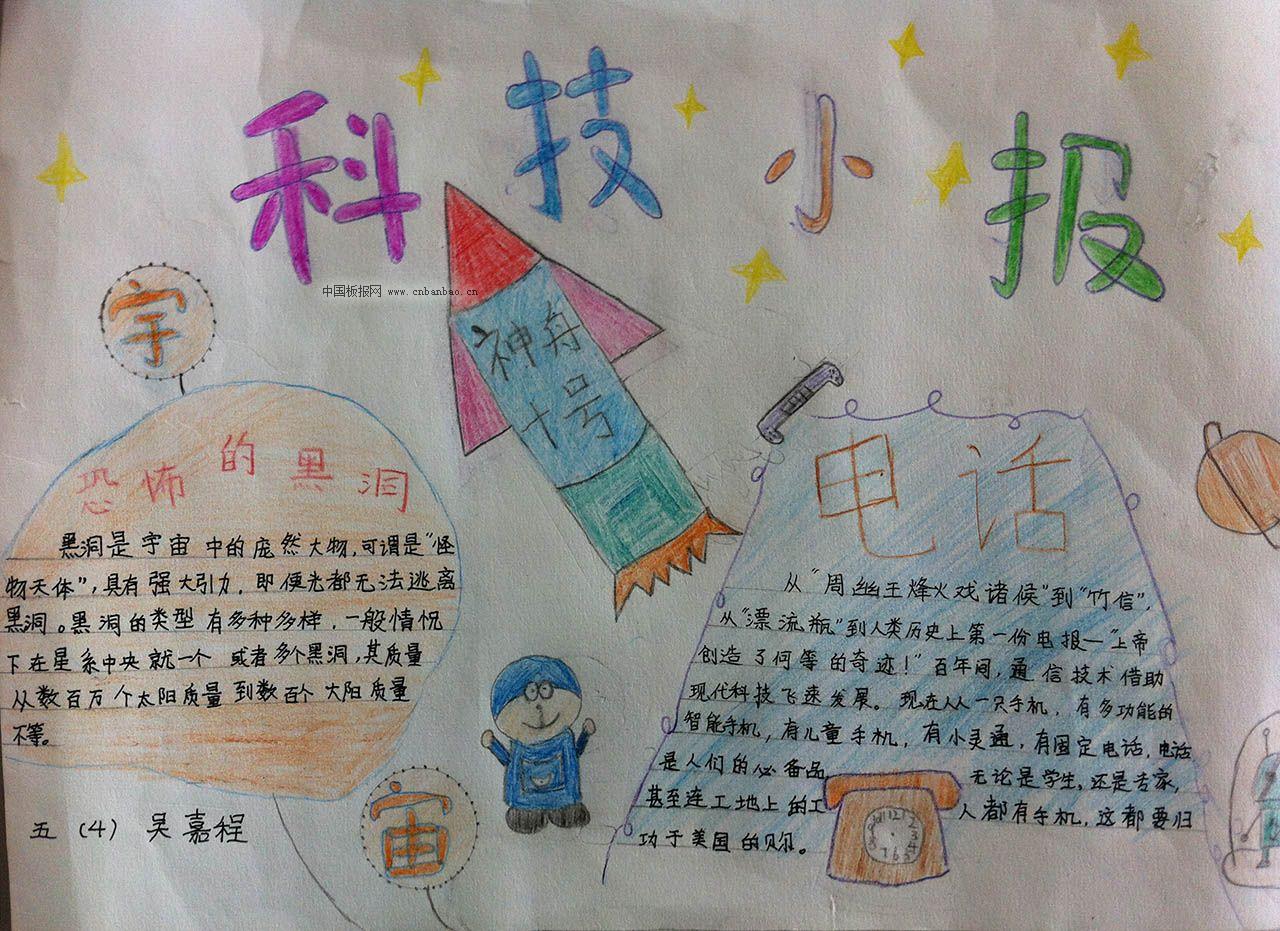 科技小报
中国板报网 www.cnbanbao.cn
宇
神舟
十号
恐怖的黑洞
黑洞是宇宙中的庞然大物,可谓是“怪
物天体”,具有强大引力,即便光都无法逃离
黑洞。黑洞的类型有多种多样,一般情况
下在星系中央就一个或者多个黑洞,其质量
从数百万个太阳质量到数百个大阳质量
不等。
宙
五(4) 吴嘉程
电话
从“周幽王烽火戏诸候”到“竹信”,
从“漂流瓶”到人类历史上第一份电报—“上帝
创造了何等的奇迹!”百年间,通信技术借助
现代科技飞速发展。现在人人一只手机,有多功能的
智能手机,有儿童手机,有小灵通,有固定电话,电话
是人们的必备品 无论是学生,还是专家,
甚至连工地上的工人都有手机,这都要归
功于美国的贝尔。
12 1 2 3 4 5 6 7